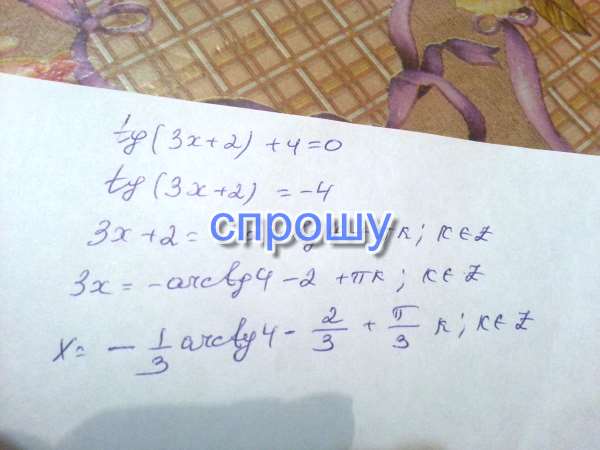 tg(3x+2)+4=0
tg(3x+2)=-4
3x+2= πk; k∈Z
спрошу
3x=-arctg4-2+πk; k∈Z
x=-1/3 arctg4-2/3+π/3 k; k∈Z